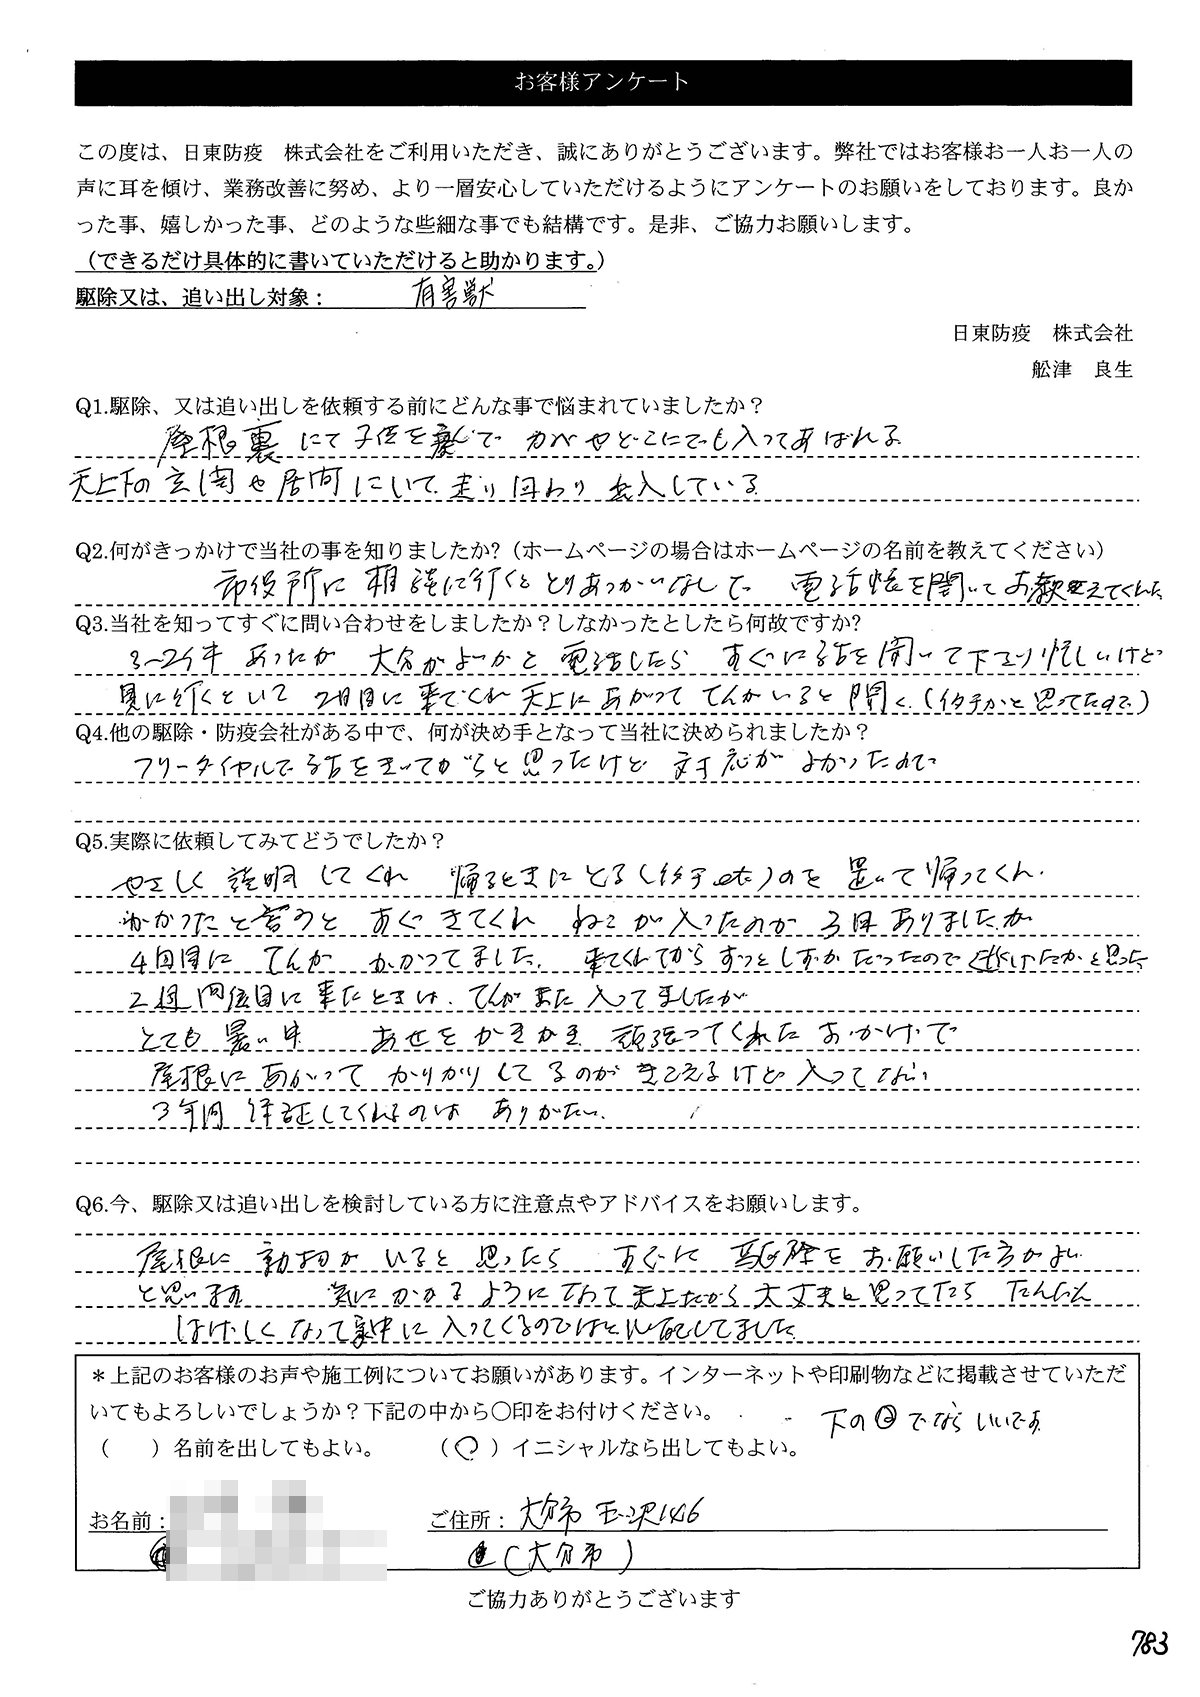 お客様アンケート
この度は、日東防疫　株式会社をご利用いただき、誠にありがとうございます。弊社ではお客様お一人お一人の
声に耳を傾け、業務改善に努め、より一層安心していただけるようにアンケートのお願いをしております。良か
った事、嬉しかった事、どのような些細な事でも結構です。是非、ご協力お願いします。
（できるだけ具体的に書いていただけると助かります。）
駆除又は、追い出し対象： 有害獣
日東防疫　株式会社
舩津　良生
Q1.駆除、又は追い出しを依頼する前にどんな事で悩まれていましたか？
屋根裏にて子供を産んで かべやどこにでも入ってあばれる
天上下の玄関や居間にいて 走り回わり 入している
Q2.何がきっかけで当社の事を知りましたか?（ホームページの場合はホームページの名前を教えてください）
市役所に相談に行くと とりあつかいなしで 電話帳を開いてお教えてくれた
Q3.当社を知ってすぐに問い合わせをしましたか？しなかったとしたら何故ですか?
3〜2ケ年 あったが 大分がよいかと 電話したら すぐに話を聞いて下さり忙しいけど
見に行くといて 2日目に来てくれ天上にあがって てんがいると聞く（イタチかと思ってたので）
Q4.他の駆除・防疫会社がある中で、何が決め手となって当社に決められましたか？
フリーダイヤルで話をきいてからと思ったけど 対応がよかったので
Q5.実際に依頼してみてどうでしたか？
やさしく説明してくれ 帰るときにとる（イタチetc）のを置いて帰ってくれ
かかったと言うと すぐきてくれ ねこが入ったのが3回ありましたが
4回目に てんが かかってました。来てくれてからずっとしずかだったので 逃げたかと思った
2週間後目に来たときは、てんがまた入ってましたが
とても暑い中 あせをかきかき 頑張ってくれたおかげで
屋根にあがって かりかりしてるのがきこえるけど 入ってない
3年間 保証してくれるのは ありがたい
Q6.今、駆除又は追い出しを検討している方に注意点やアドバイスをお願いします。
屋根に動物がいると思ったら すぐに駆除をお願いした方がよい
と思います 気にかかるようになって天上だから大丈夫と思ってたら だんだん
はげしくなって家中に入ってくるのではと心配してました
＊上記のお客様のお声や施工例についてお願いがあります。インターネットや印刷物などに掲載させていただ
いてもよろしいでしょうか？下記の中から〇印をお付けください。
下の でならいいです
（　）名前を出してもよい。　（〇）イニシャルなら出してもよい。
お名前： ご住所：大分市玉沢146
（大分市）
ご協力ありがとうございます
783